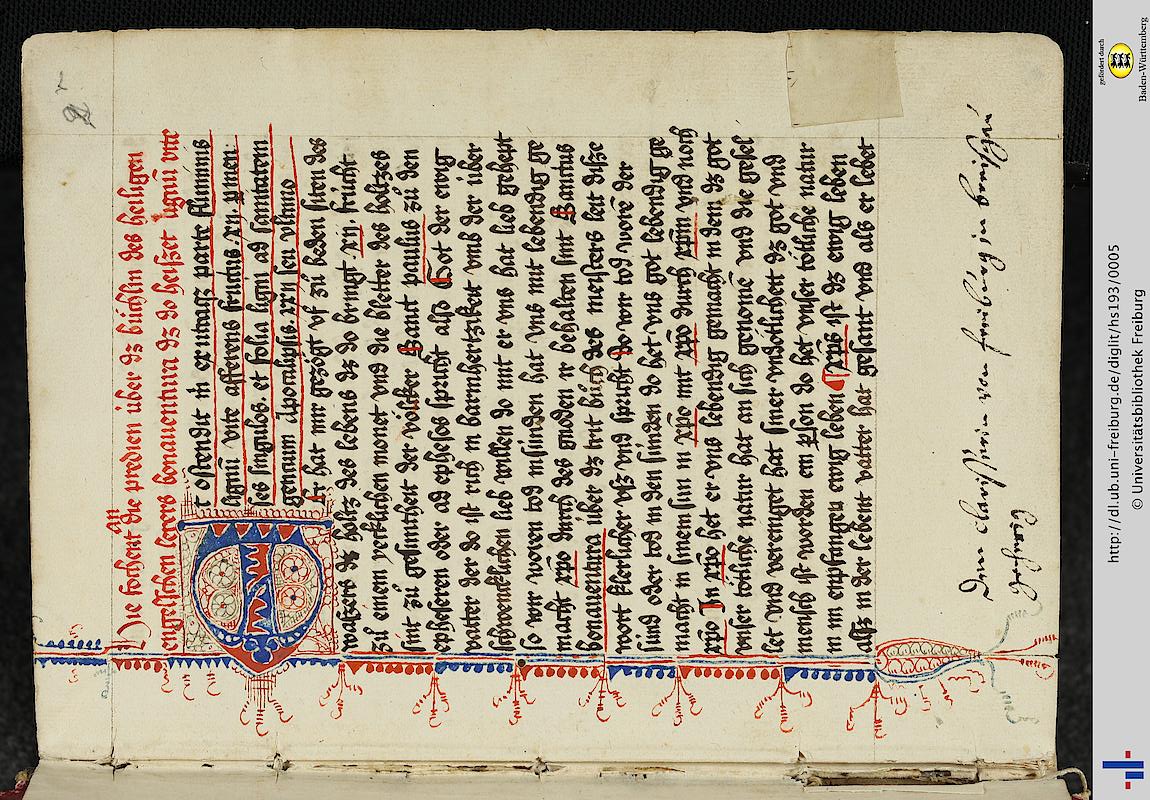 2r
Hie fochent an die predien über dz büchlin des heiligen
engelschen lerers bonauentura dz do heisset lignū vite
Et ostendit m ex utraqz parte fluminis
lignū vite afferens fructus .xij. p men
ses singulos. et folia ligni ad sanitatem
gencium Apocalipsis .xxij sen vltimo
Er hat mir gezögt vf zü beden siten des
wassers dz holtz des lebens dz do bringt xij. frücht
zü einem yetklichen monet vnd die bletter des holtzes
sint zü gesuntheit der völker Sant paulus zü den
epheseren oder ad ephesos spricht also Got der ewig
vatter der do ist rich in barmhertzikeit vmb der über
schwencklichen lieb willen do mit er vns hat lieb gehept
so wir woren tod in sünden hat vns mit lebendig ge
macht xpo durch des gnoden ir behalten sint Sanctus
bonauentura über dz trit büch des meisters leit disze
wort klerlicher vsz vnd spricht Do wir tod wore̅ der
sünd oder tod in den sünden do het vns got lebendig ge
macht in sinem sun in xpo mit xpo durch xpm vnd noch
xpo In xpo het er vns lebendig gemacht in dem dz got
vnser tötliche natur hat an sich genomē vnd die gesel
let vnd vereinget hat siner vndötlicheit dz got vnd
mensch ist worden ein pson do het vnser tötliche natur
in im enpfangen ewig leben Xpus ist dz ewig leben
alsz in der lebent vatter hat gesant vnd als er lebet
Den clarisserin von freiburg im breisgau
gehörig
gefördert durch
Baden-Württemberg
http://dl.ub.uni-freiburg.de/diglit/hs193/0005
© Universitätsbibliothek Freiburg